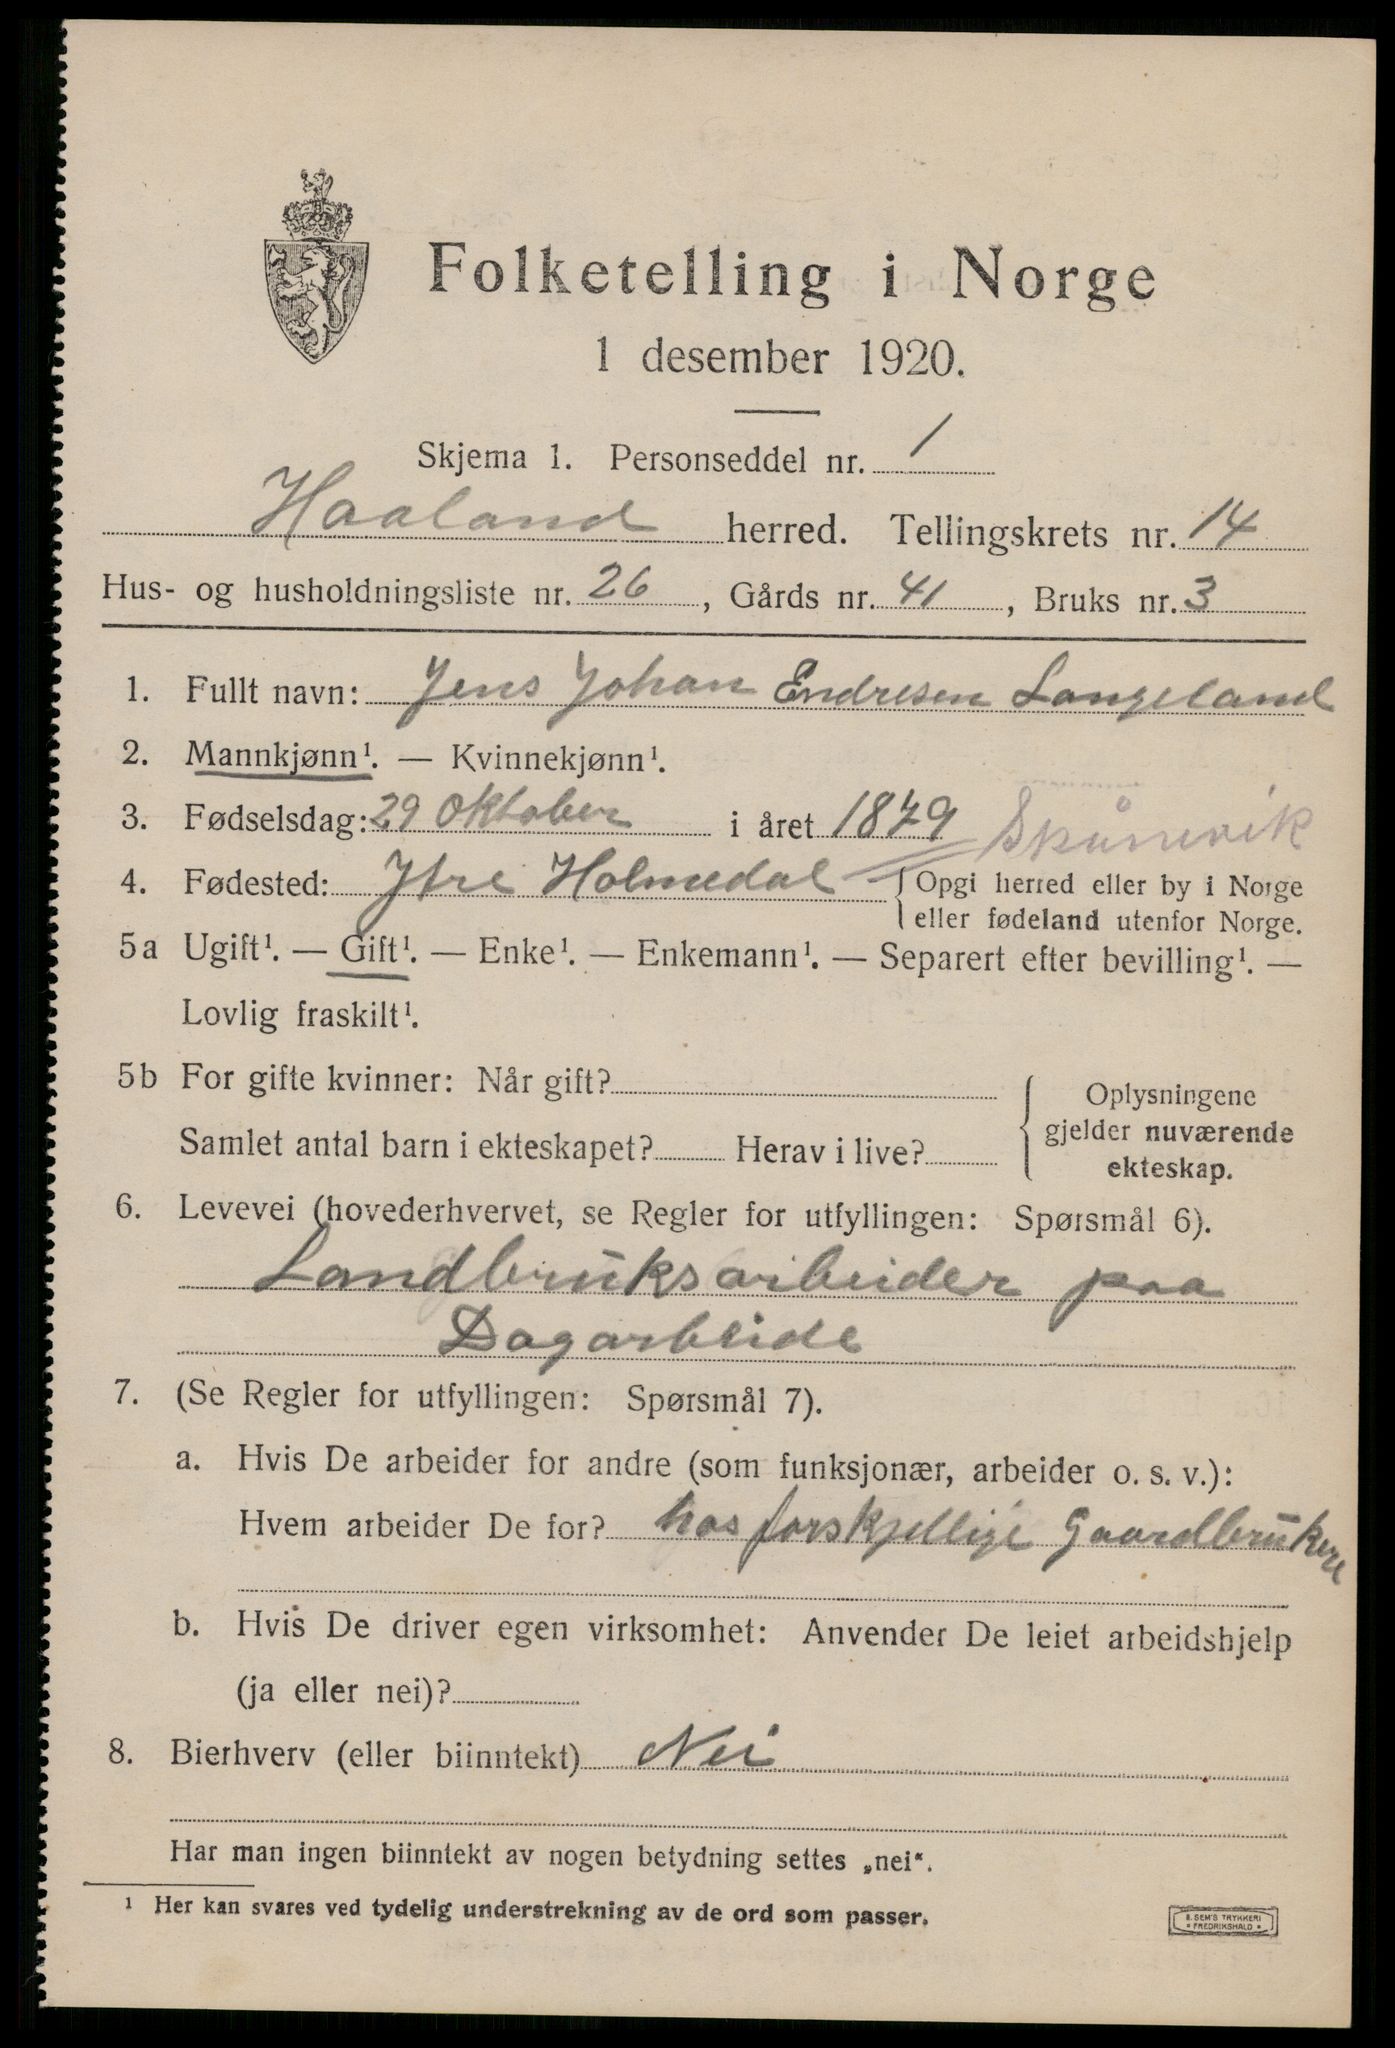 Folketelling i Norge
1 desember 1920.
Skjema 1. Personseddel nr. 1
Haaland herred. Tellingskrets nr. 14
Hus- og husholdningsliste nr. 26, Gårds nr. 41, Bruks nr. 3
1. Fullt navn: Jens Johan Endresen Langeland
2. Mannkjønn¹. — Kvinnekjønn¹.
3. Fødselsdag: 29 Oktober i året 1879
Skånevik
4. Fødested: Ytre Holmedal { Opgi herred eller by i Norge
eller fødeland utenfor Norge.
5a Ugift¹. — Gift¹. — Enke¹. — Enkemann¹. — Separert efter bevilling¹. —
Lovlig fraskilt¹.
5b For gifte kvinner: Når gift?
Samlet antal barn i ekteskapet? Herav i live?
Oplysningene
gjelder nuværende
ekteskap.
6. Levevei (hovederhvervet, se Regler for utfyllingen: Spørsmål 6).
Landbruksarbeider paa
Dagarbeide
7. (Se Regler for utfyllingen: Spørsmål 7).
a. Hvis De arbeider for andre (som funksjonær, arbeider o. s. v.):
Hvem arbeider De for? hos forskjellige Gaardbrukere
b. Hvis De driver egen virksomhet: Anvender De leiet arbeidshjelp
(ja eller nei)?
8. Bierhverv (eller biinntekt) Nei
Har man ingen biinntekt av nogen betydning settes „nei“.
¹ Her kan svares ved tydelig understrekning av de ord som passer.
E. SEM'S TRYKKERI
* FREDRIKSHALD *